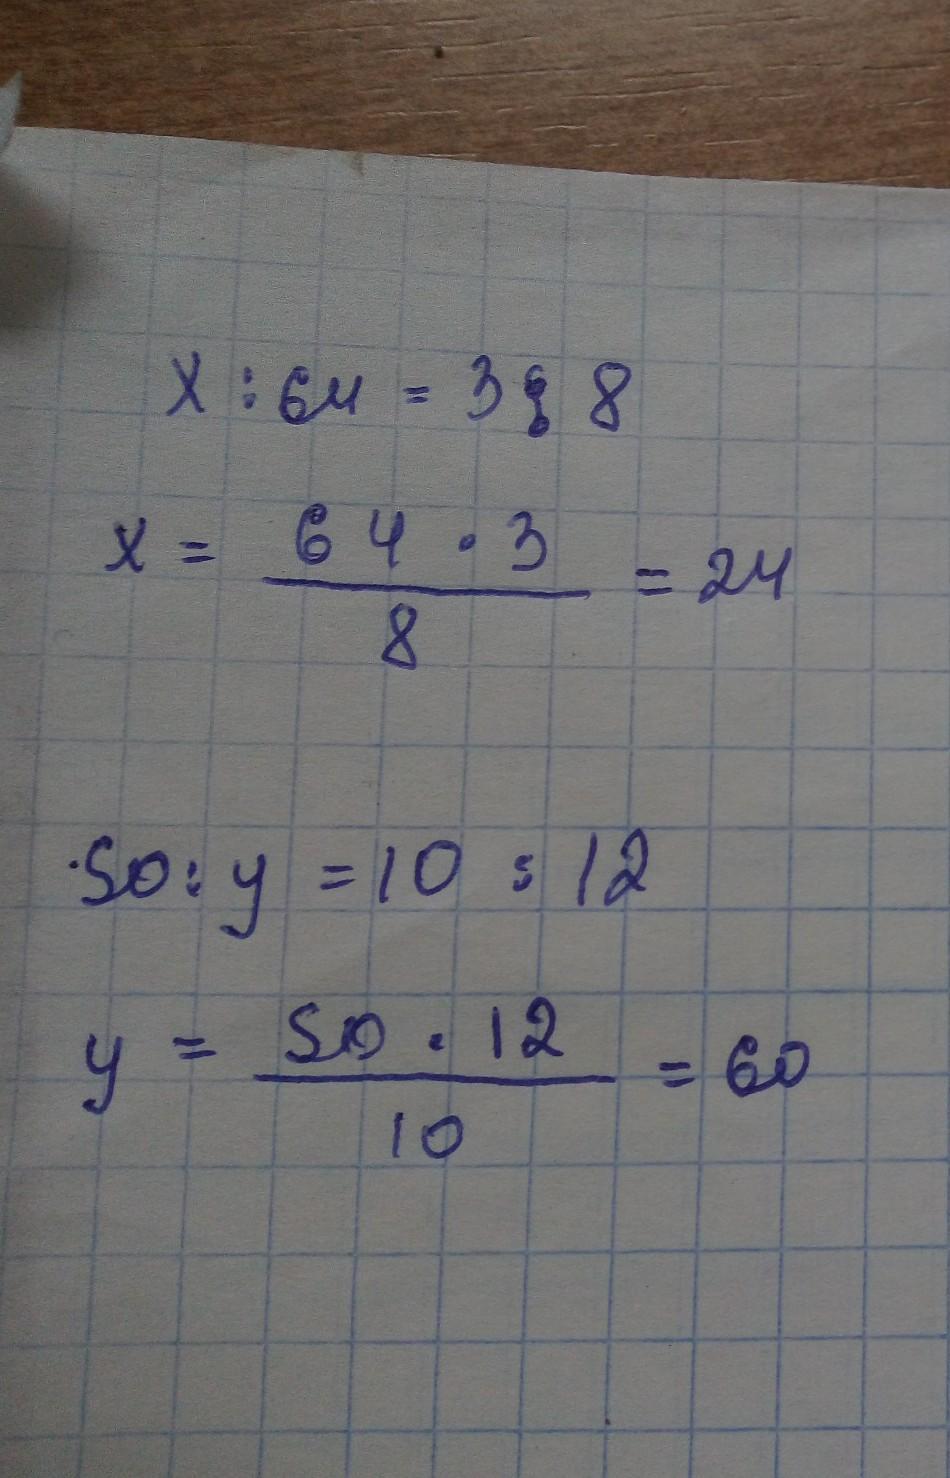 x : 64 = 3 : 8
x = 64 · 3 / 8 = 24
50 : y = 10 : 12
y = 50 · 12 / 10 = 60